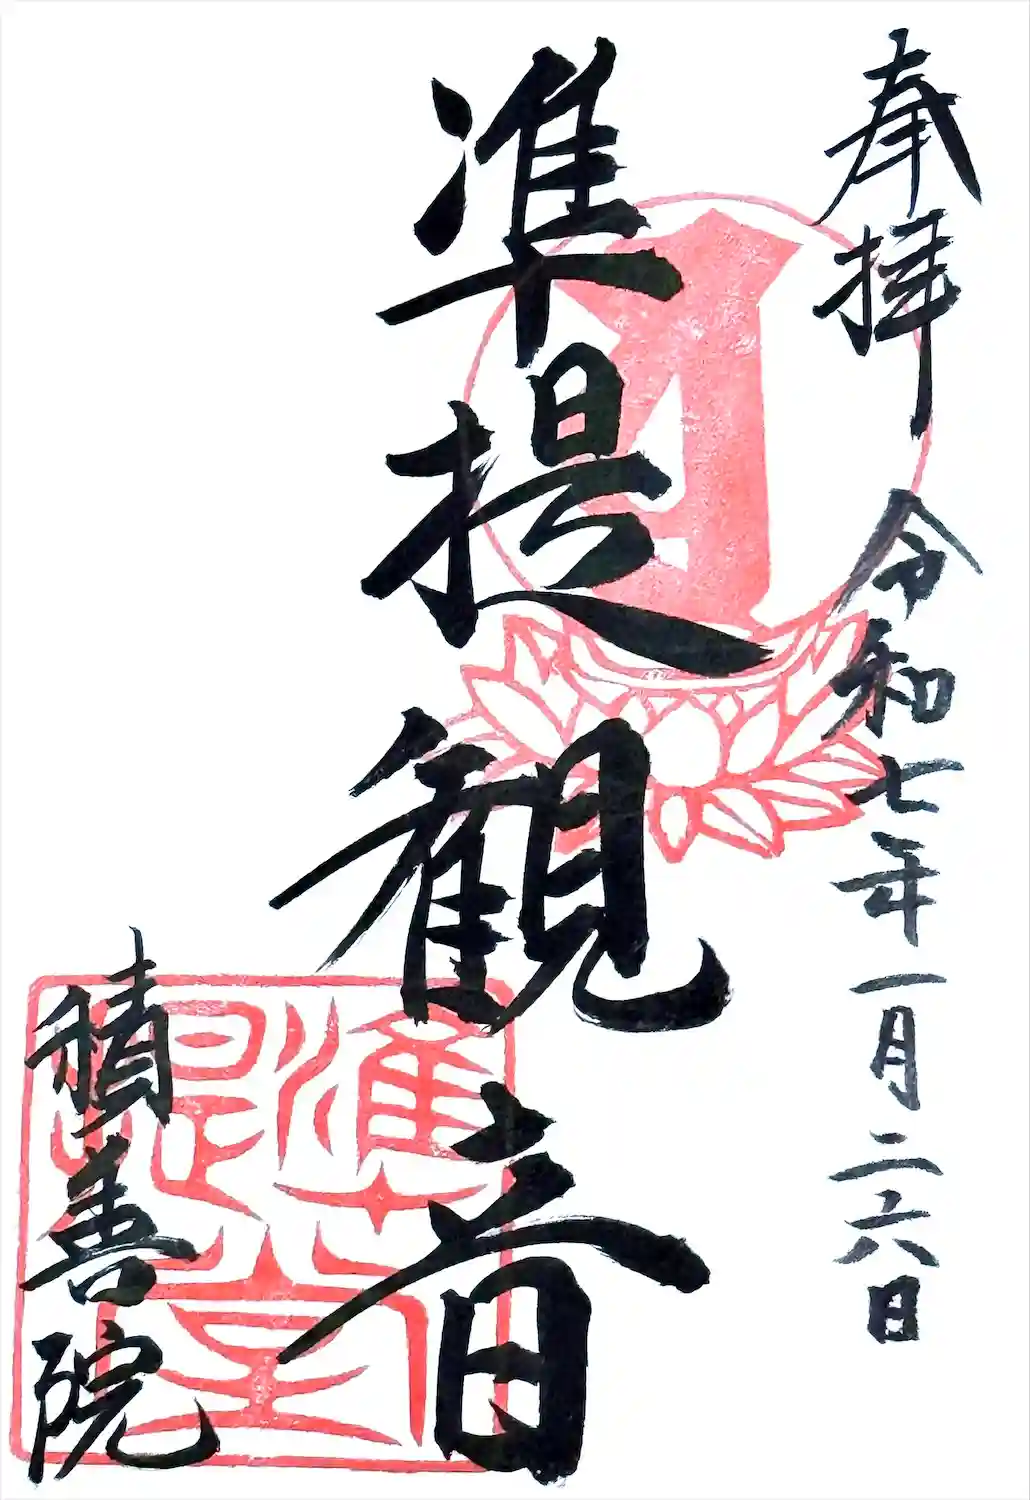 奉拝 令和七年一月二六日
準提観音
積善院
準提堂